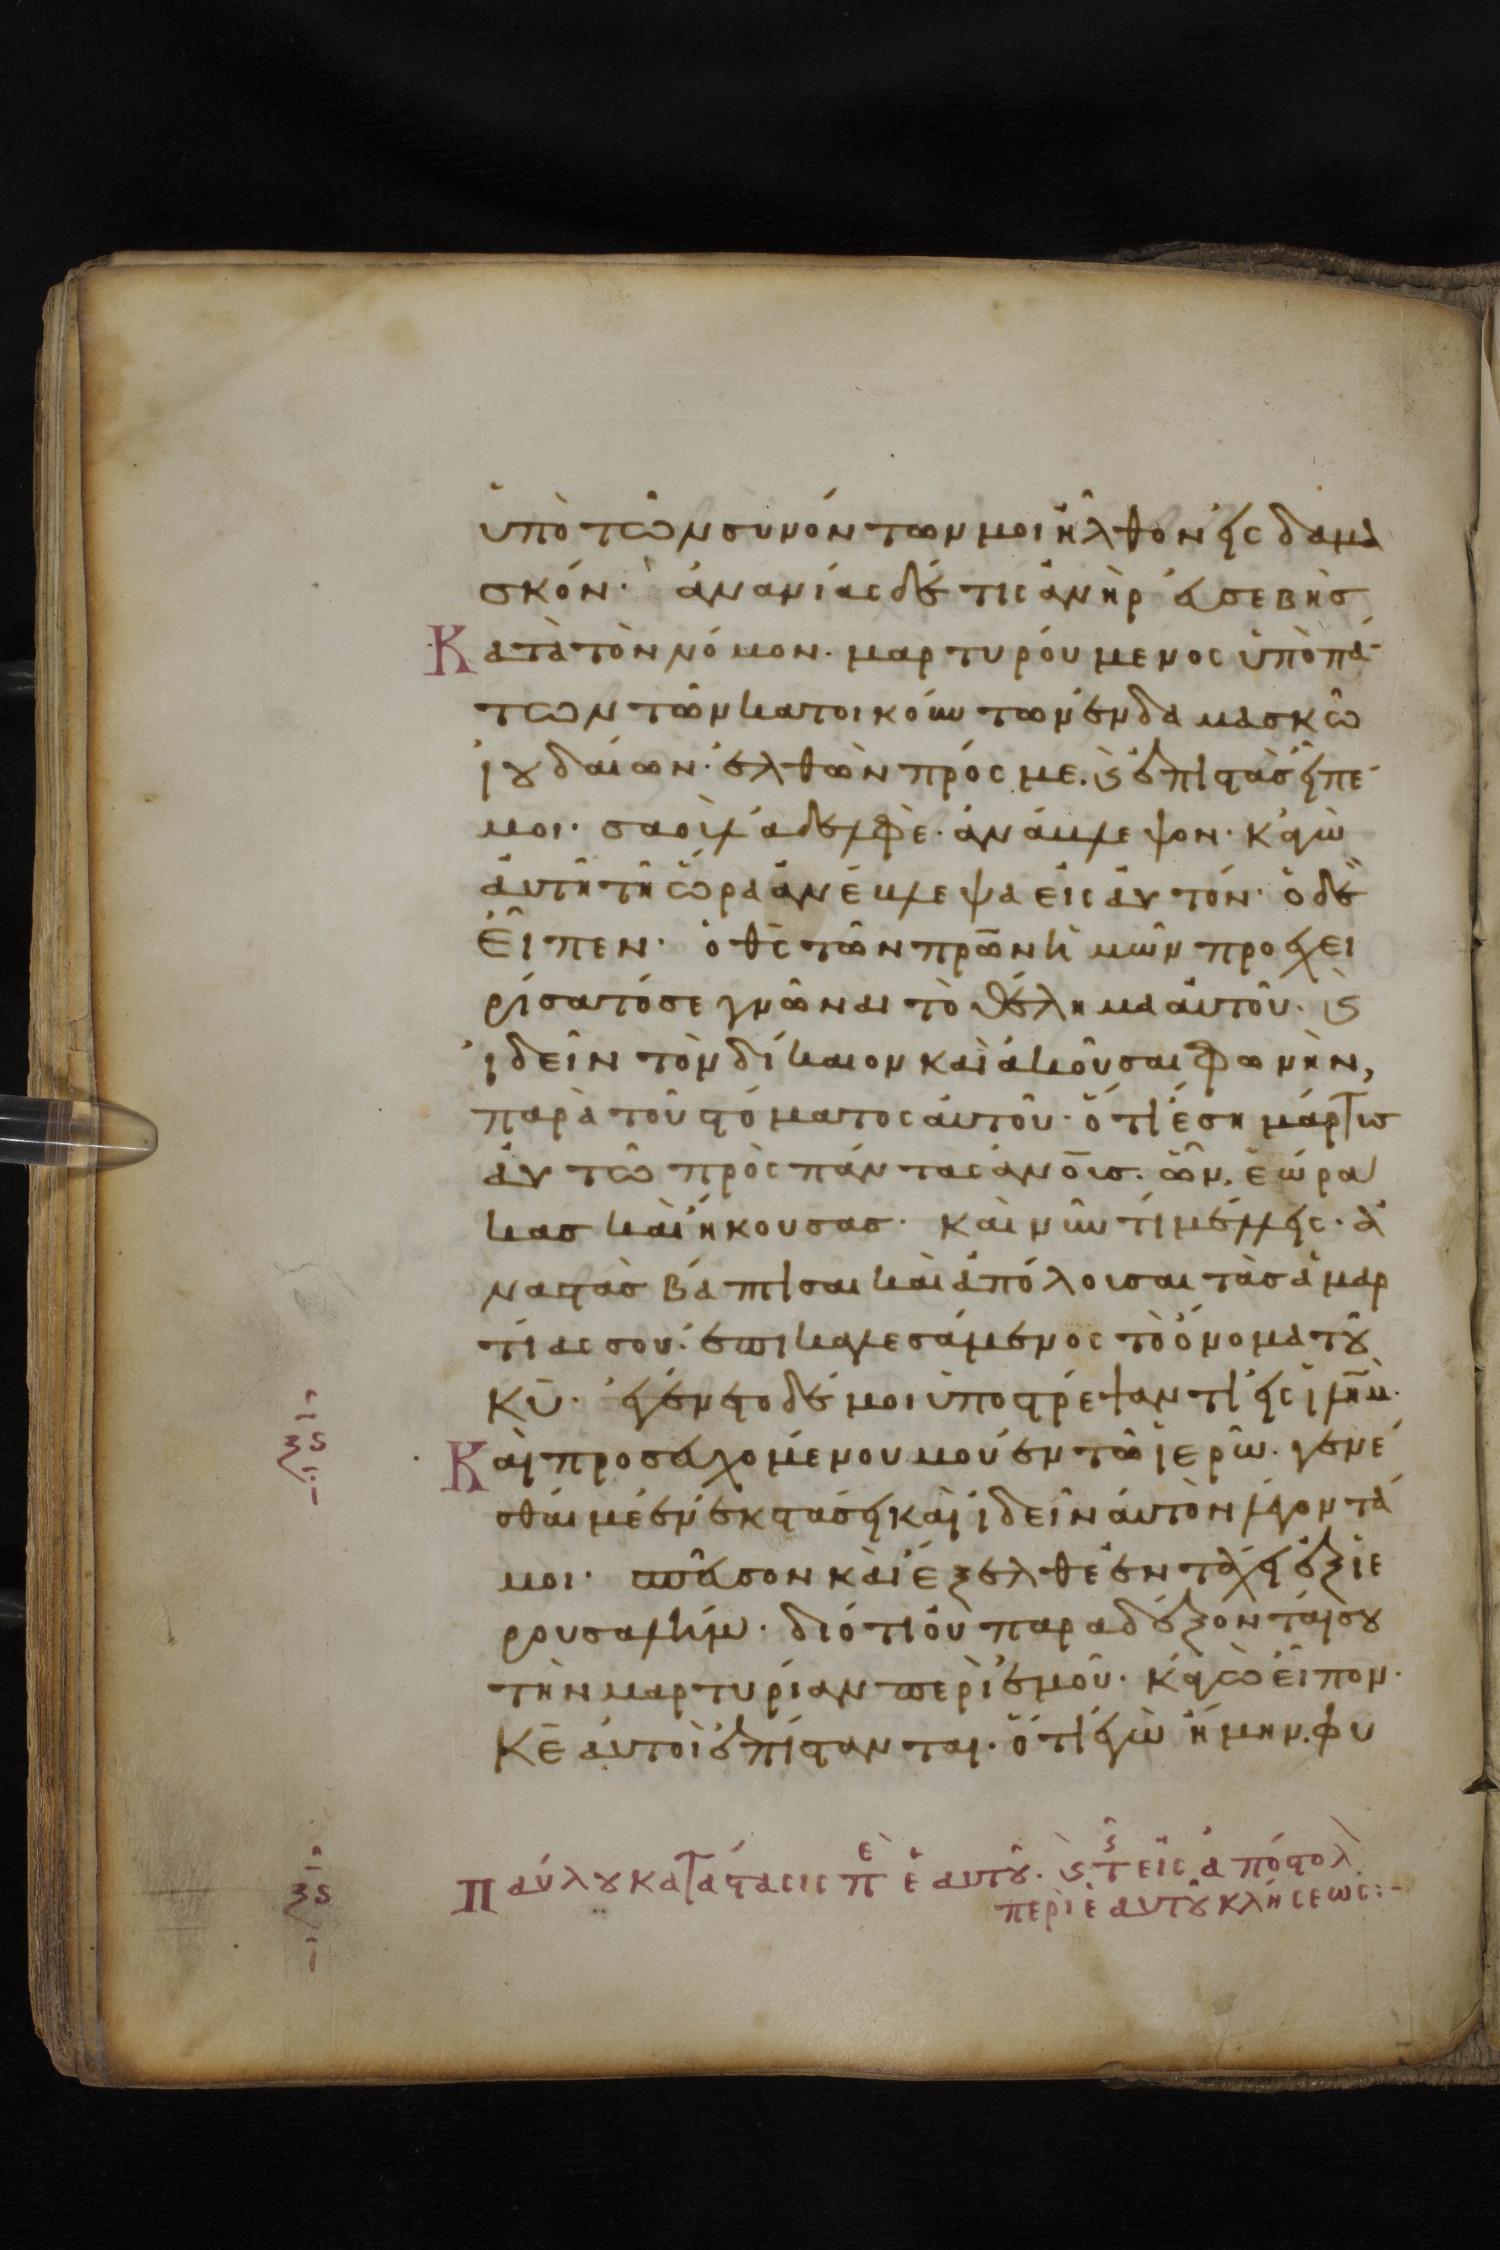 ὑπὸ τῶν συνόντων μοι ἦλθον εἰς δαμα
σκόν· ἀνανίας δέ τις ἀνὴρ εὐσεβὴς
Κατὰ τὸν νόμον· μαρτυρούμενος ὑπὸ πά
των τῶν κατοικούντων ἐν δαμασκῶ
ἰουδαίων· ἐλθὼν πρός με. ϗ ἐπιστὰς εἶπέ
μοι· σαοὺλ ἀδελφὲ· ἀνάβλεψον· κἀγὼ
αὐτῆ τῆ ὥρα ἀνέβλεψα εἰς αὐτόν· ὁ δὲ
εἶπεν· ὁ θς τῶν πρων ἡμῶν προχει
ρίσατό σε γνῶναι τὸ θέλημα αὐτοῦ· ϗ
ἰδεῖν τὸν δίκαιον καὶ ἀκοῦσαι φωνὴν,
παρὰ τοῦ στόματος αὐτοῦ· ὅτι ἔση μάρτυς
αὐτῶ πρὸς πάντας ἀνους· ὧν, ἑώρα
κας καὶ ἤκουσας· καὶ νῦν τί μέλλεις· ἀ
ναστὰς βάπτισαι καὶ ἀπόλουσαι τὰς ἁμαρ
τίας σου· ἐπικαλεσάμενος τὸ ὄνομα τοῦ
κυ· ἐγένετο δέ μοι ὑποστρέψαντι εἰς ἱλημ·
Καὶ προσευχομένου μου ἐν τῶ ἱερῶ· γενέ
σθαι με ἐν ἐκστάσει καὶ ἰδεῖν αὐτὸν λέγοντά
μοι· σπεῦσον καὶ ἔξελθε ἐν τάχει ἐξ ἱε
ρουσαλήμ· διότι οὐ παραδέξονταί σου
τὴν μαρτυρίαν περὶ ἐμοῦ· κἀγὼ εἶπον·
κε αὐτοὶ ἐπίστανται· ὅτι ἐγὼ ἤμην. φυ
Παύλου κατάστασις πε ἑαυτοῦ· ϗ τῆς εἰς ἀπόστολ
περὶ ἑαυτοῦ κλήσεως:-